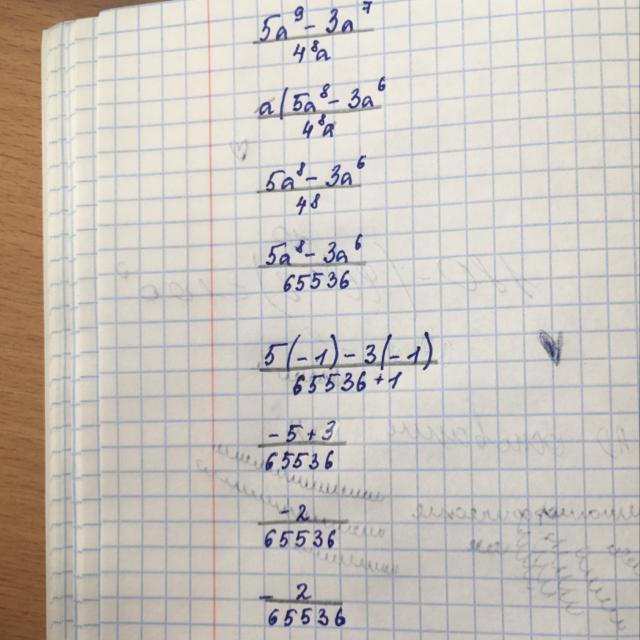 5a⁹ - 3a⁷
4⁸a
a(5a⁸ - 3a⁶
4⁸a
5a⁸ - 3a⁶
4⁸
5a⁸ - 3a⁶
65536
5(-1) - 3(-1)
65536 + 1
-5+3
65536
-2
65536
- 2
65536